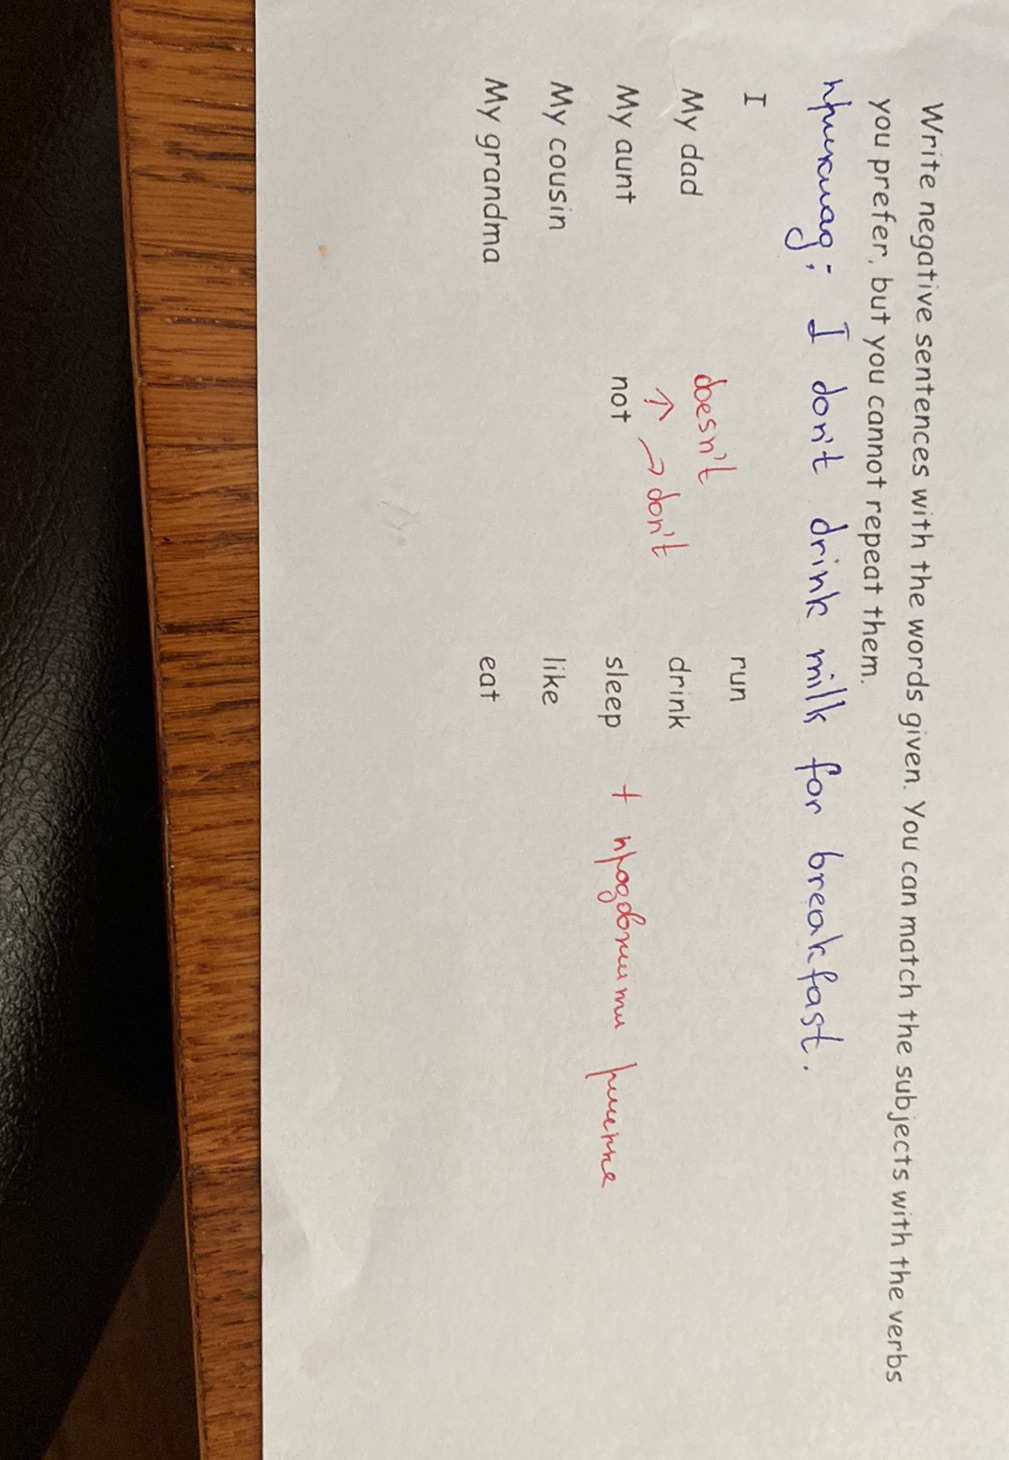 Write negative sentences with the words given. You can match the subjects with the verbs
you prefer, but you cannot repeat them.
приклад: I don't drink milk for breakfast.
I run
My dad doesn't drink
My aunt not → don't sleep + продовжити речення
My cousin like
My grandma eat